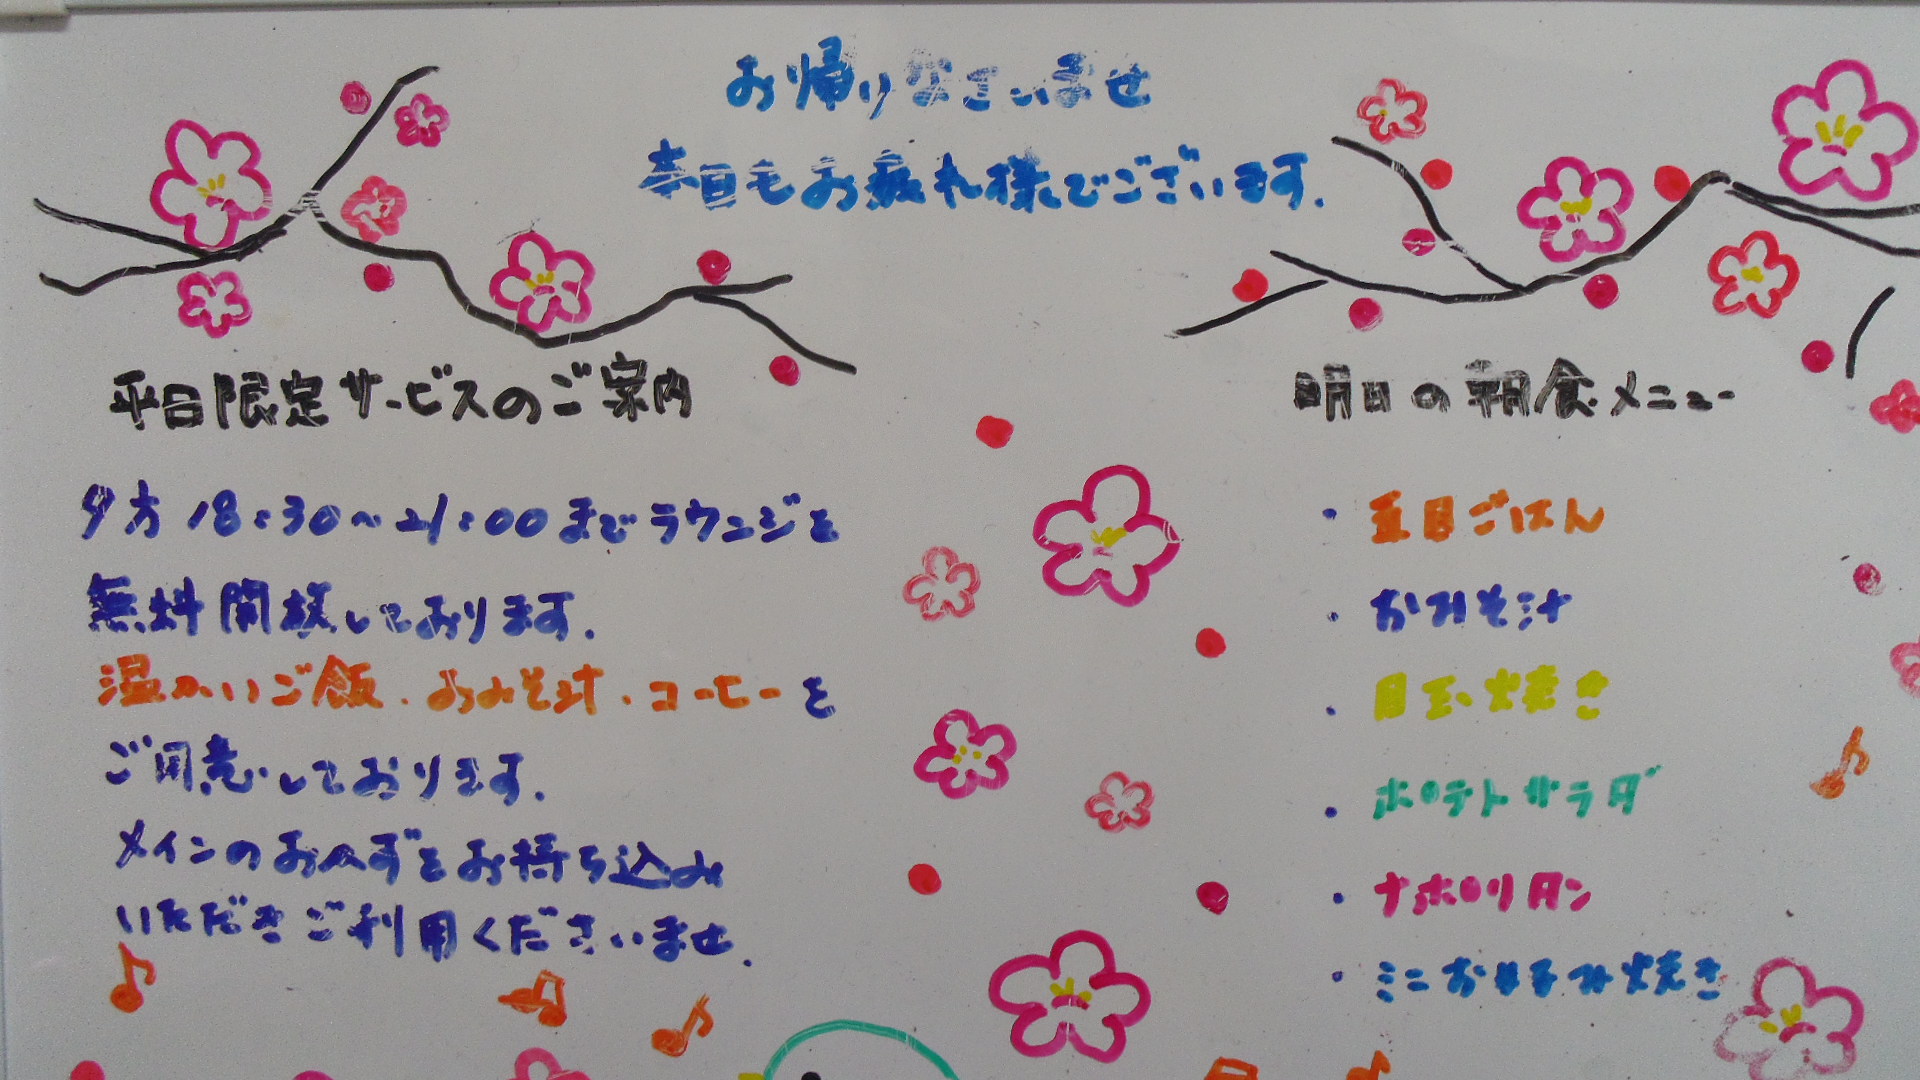 お帰りなさいませ
本日もお疲れ様でございます.
平日限定サービスのご案内
夕方 18:30〜21:00までラウンジを
無料開放しております.
温かいご飯.おみそ汁.コーヒーを
ご用意しております.
メインのおかずをお持ち込み
いただきご利用くださいませ.
明日の朝食メニュー
・五目ごはん
・おみそ汁
・目玉焼き
・ポテトサラダ
・ナポリタン
・ミニお好み焼き